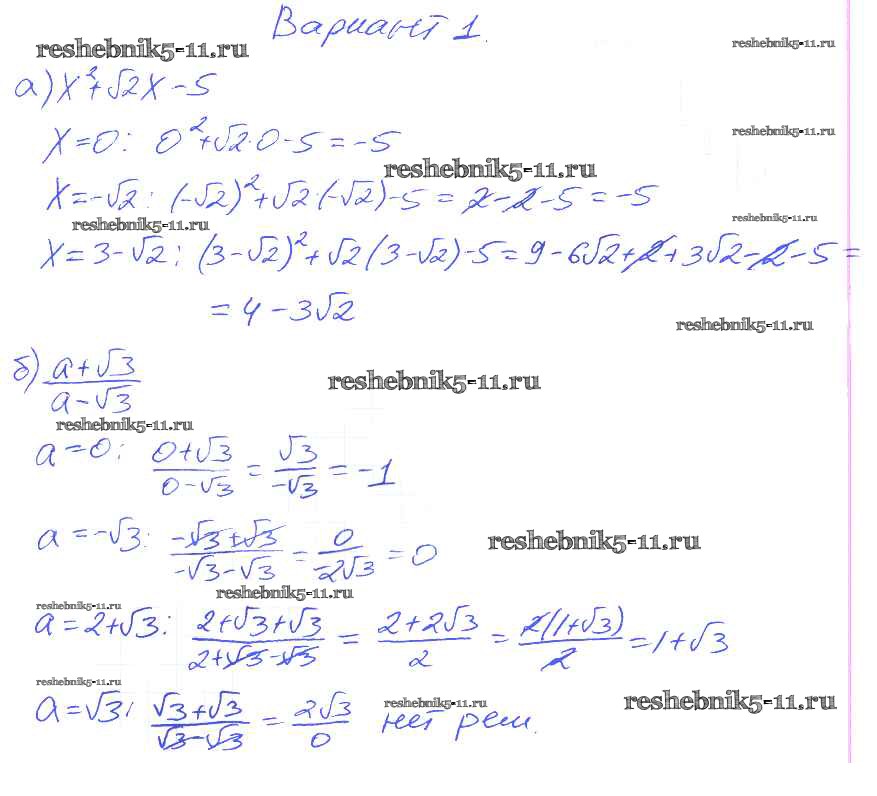 Вариант 1.
reshebnik5-11.ru
reshebnik5-11.ru
а) x² + √2x - 5
x = 0: 0² + √2·0 - 5 = -5
reshebnik5-11.ru
reshebnik5-11.ru
x = -√2: (-√2)² + √2·(-√2) - 5 = 2 - 2 - 5 = -5
reshebnik5-11.ru
reshebnik5-11.ru
x = 3 - √2: (3 - √2)² + √2(3 - √2) - 5 = 9 - 6√2 + 2 + 3√2 - 2 - 5 =
= 4 - 3√2
reshebnik5-11.ru
б) (a + √3)/(a - √3)
reshebnik5-11.ru
reshebnik5-11.ru
a = 0: (0 + √3)/(0 - √3) = √3/(-√3) = -1
a = -√3: (-√3 + √3)/(-√3 - √3) = 0/(-2√3) = 0
reshebnik5-11.ru
reshebnik5-11.ru
reshebnik5-11.ru
a = 2 + √3: (2 + √3 + √3)/(2 + √3 - √3) = (2 + 2√3)/2 = 2(1 + √3)/2 = 1 + √3
reshebnik5-11.ru
reshebnik5-11.ru
reshebnik5-11.ru
a = √3: (√3 + √3)/(√3 - √3) = 2√3/0 нет реш.